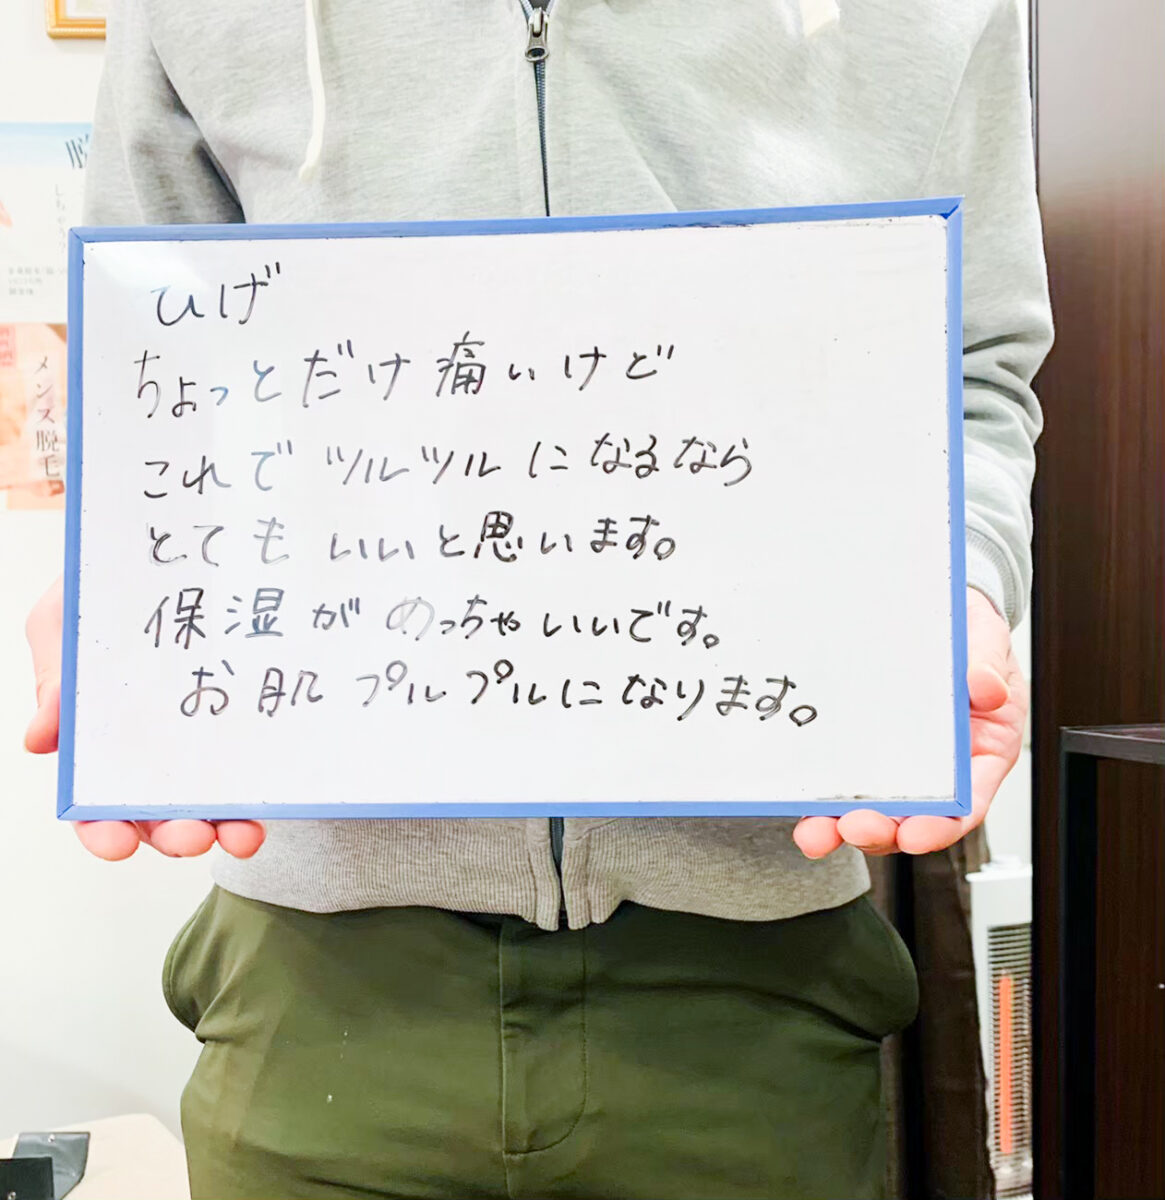 ひげ
ちょっとだけ痛いけど
これでツルツルになるなら
とてもいいと思います。
保湿がめっちゃいいです。
お肌プルプルになります。
メンズ脱毛